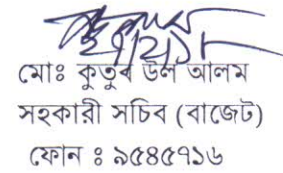 মোঃ কুতুব উল আলম
সহকারী সচিব (বাজেট)
ফোন ঃ ৯৫৪৫৭১৬